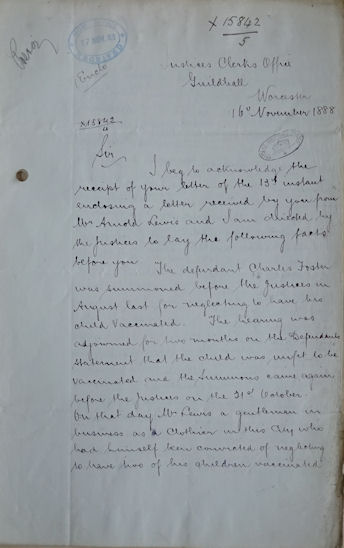 X15842
5
17 NOV. 88
Enclo
ustices Clerks Office
Guildhall
Worcester
16th November 1888
X15842
4
Sir
I beg to acknowledge the
receipt of your letter of the 13th instant
enclosing a letter received by you from
Mr Arnold Lewis and I am directed by
the Justices to lay the following facts
before you. The defendant Charles Foster
was summoned before the Justices in
August last for neglecting to have his
child vaccinated. The hearing was
adjourned for two months on the Defendants
statement that the child was unfit to be
vaccinated and the Summons came again
before the Justices on the 31st October.
On that day Mr Lewis a gentleman in
business as a Clothier in this City who
had himself been convicted of neglecting
to have two of his children vaccinated